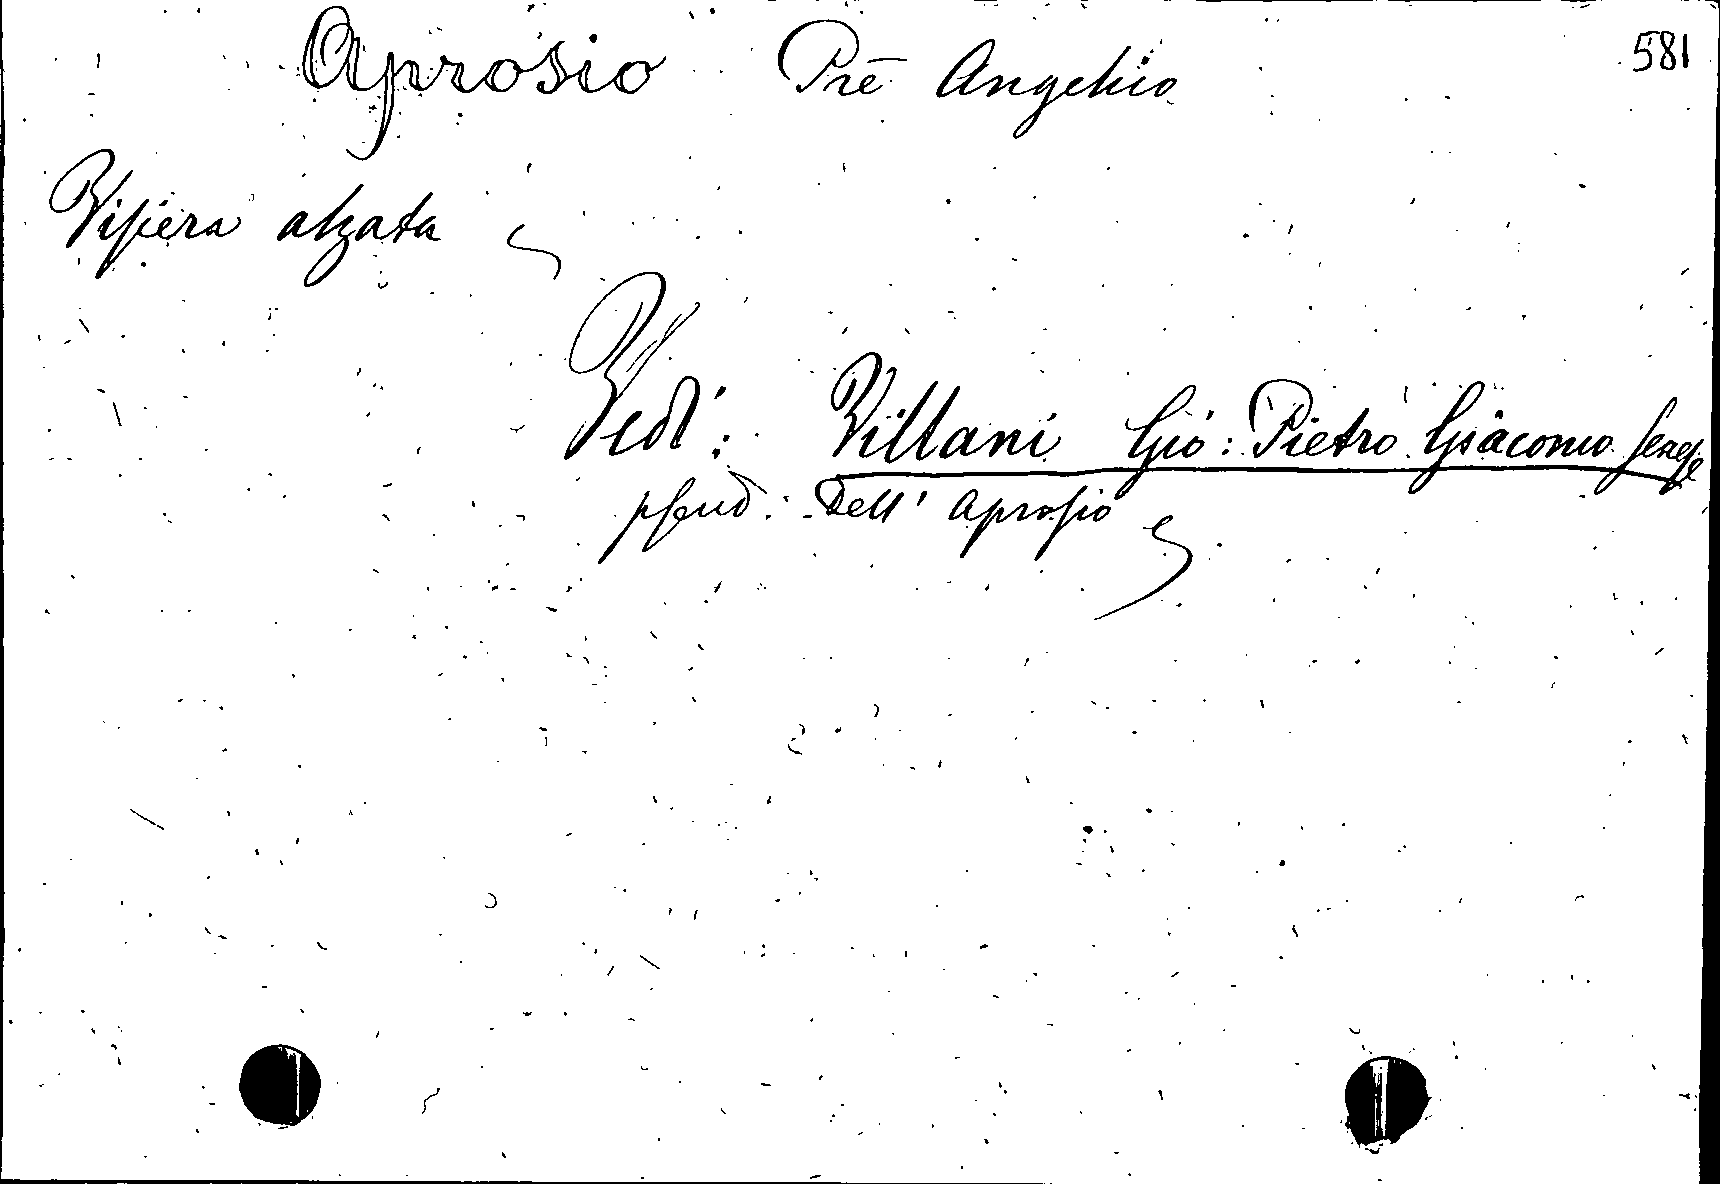 Aprosio Pre Angelico 581
Visiera alzata
Vedi: Villani Gio: Pietro Giacomo Senese
pseud: dell' Aprosio